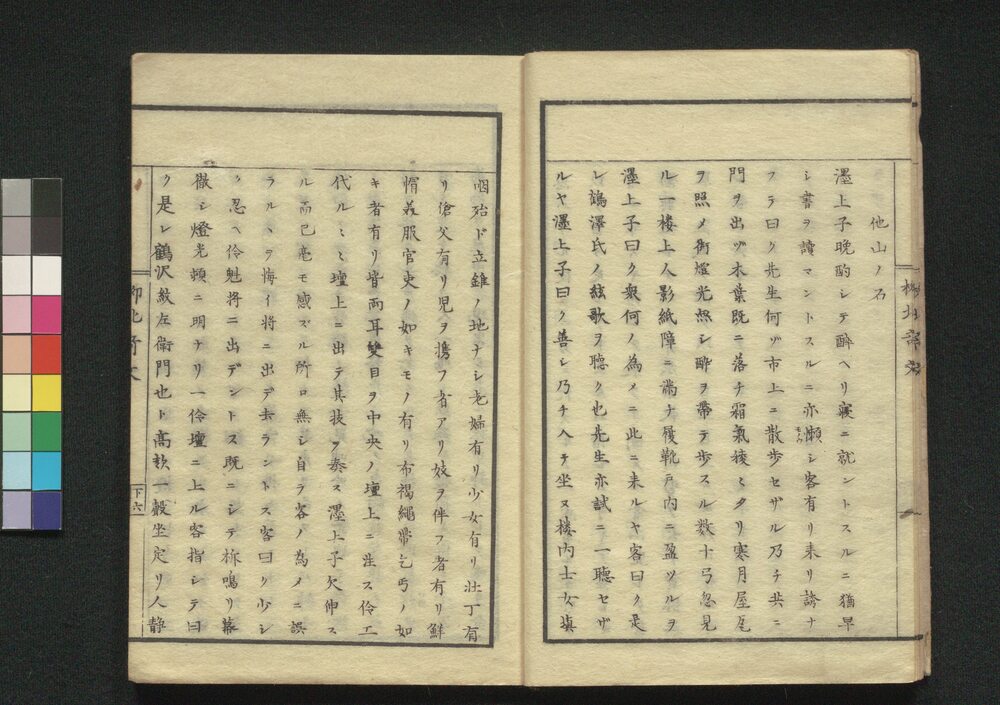 他山ノ石
濹上子晩酌シテ酔ヘリ寝ニ就ントスルニ猶早
シ書ヲ読マントスルニ亦懶シ客有リ来リ誇ナ
フラ曰ク先生何ゾ市上ニ散歩セザル乃チ共ニ
門ヲ出ヅ木葉既ニ落チ霜氣稜ミタリ寒月屋瓦
ヲ照メ街燈光点シ酔ヲ帯テ歩スル数十弓忽見
ル一楼上人影紙障ニ満ナ履靴戸内ニ盈ツルヲ
濹上子曰ク衆何ノ為メニ此ニ来ルヤ客曰ク是
レ鶴澤氏ノ絃歌ヲ聴ク也先生亦試ニ一聴セザ
ルヤ濹上子曰ク善シ乃チ入テ坐ス楼内士女填
咽殆ド立錐ノ地ナシ老婦有リ少女有リ壮丁有
リ傖父有リ児ヲ携フ者アリ妓ヲ伴フ者有リ鮮
帽美服官吏ノ如キモノ有リ布褐縄帯乞丐ノ如
キ者有リ皆両耳雙目ヲ中央ノ壇上ニ注ス伶工
代ルミミ壇上ニ出テ其技ヲ奏ス濹上子欠伸ス
ル而已毫モ感ズル所ロ無シ自ラ客ノ為メニ誤
ラルヽヲ悔イ将ニ出デ去ラントス客曰ク少シ
ク忍ヘ伶魁将ニ出デントス既ニシテ柝鳴リ幕
徹シ燈光頓ニ明ナリ一伶壇ニ上ル客指シテ曰
ク是レ鶴沢紋左衛門也ト高歓一声坐定リ人静
下六